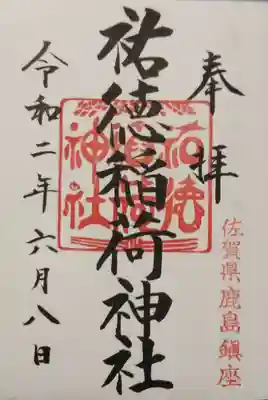 奉拝
佐賀県鹿島鎮座
祐徳稲荷神社
祐徳稲荷神社
令和二年六月八日